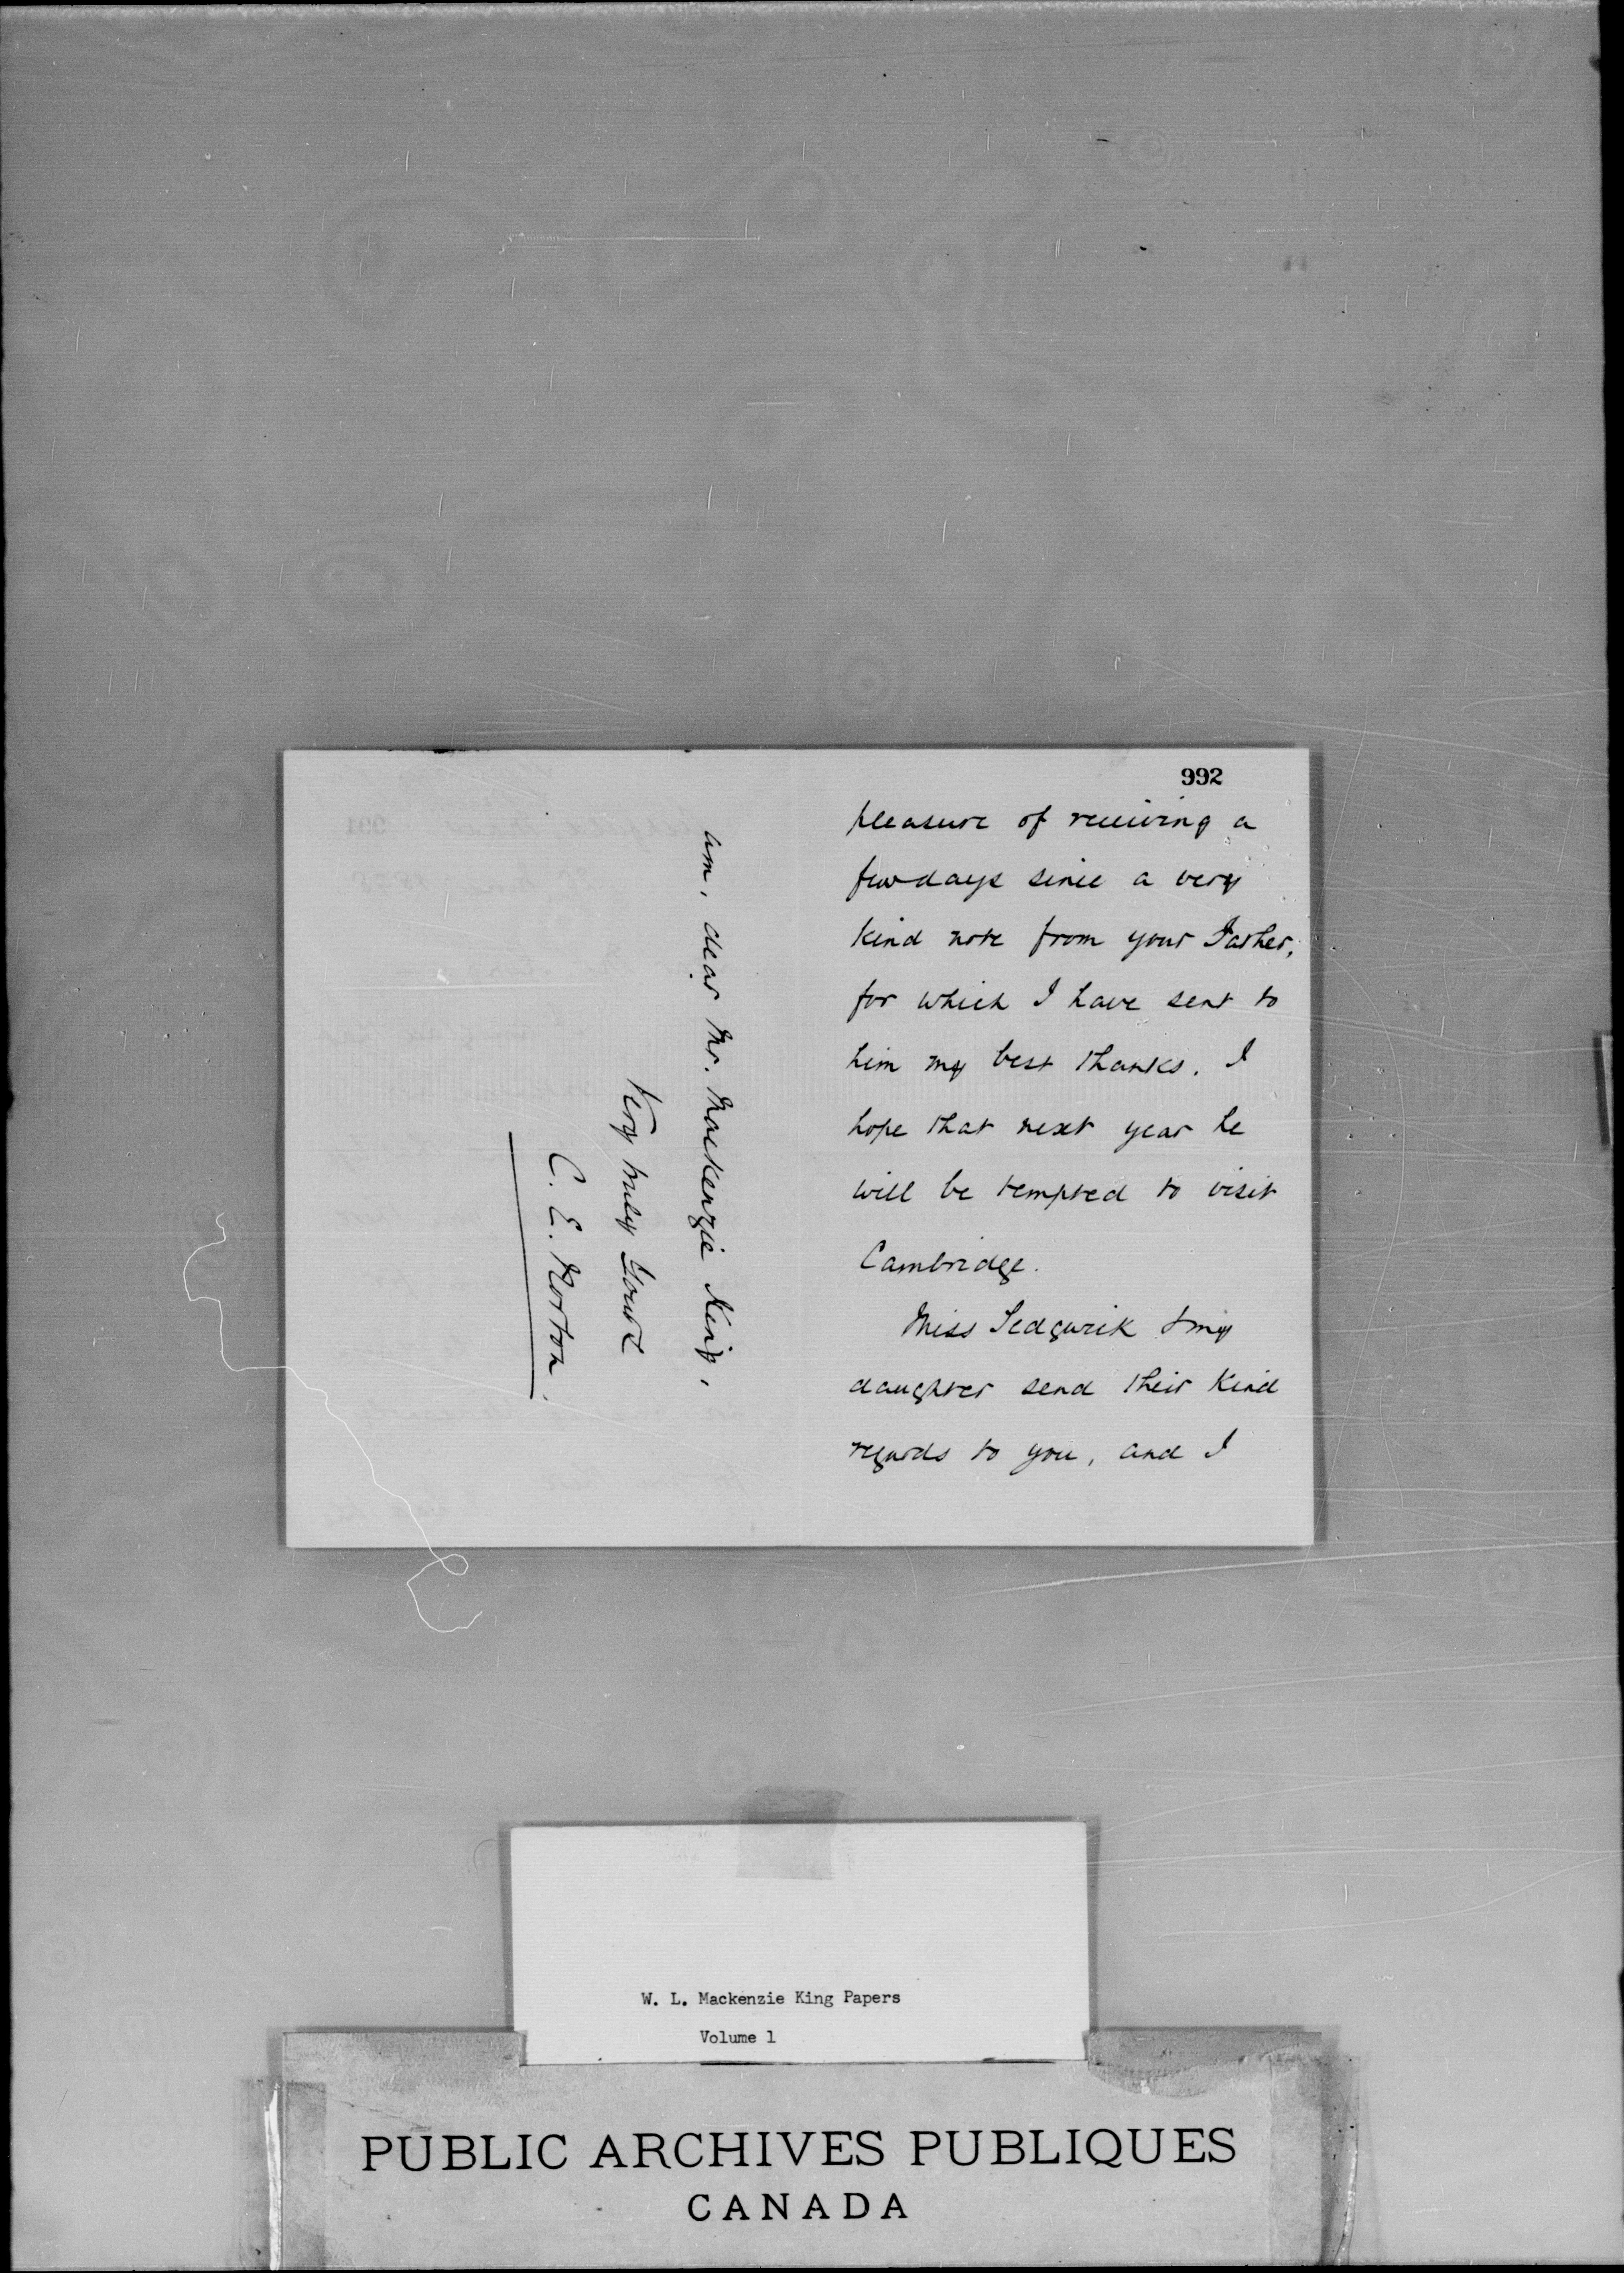 992
pleasure of receiving a
few days since a very
kind note from your Father,
for which I have sent to
him my best thanks. I
hope that next year he
will be tempted to visit
Cambridge.
Miss Sedgwick & my
daughter send their kind
regards to you, and I
am, dear Mr. Mackenzie King,
Very truly Yours
C. E. Norton.
W. L. Mackenzie King Papers
Volume 1
PUBLIC ARCHIVES PUBLIQUES
CANADA